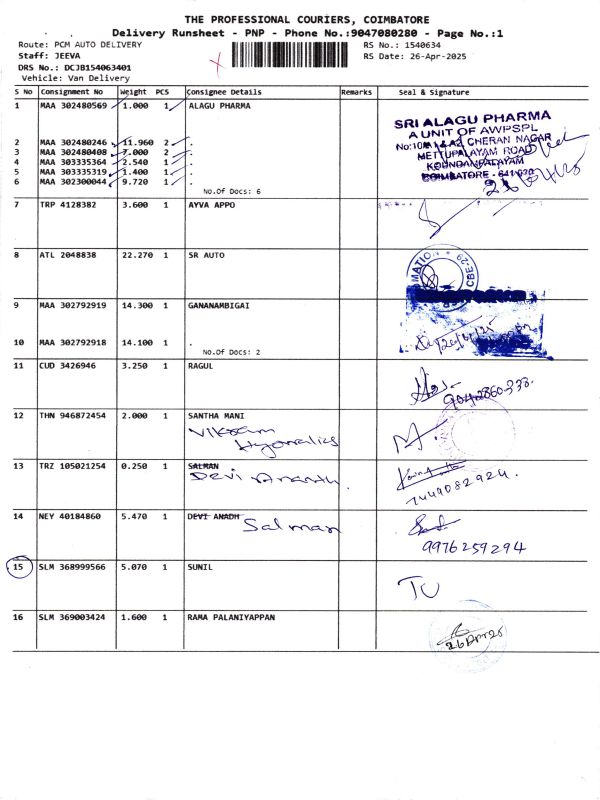 THE PROFESSIONAL COURIERS, COIMBATORE
Delivery Runsheet - PNP - Phone No.:9047080280 - Page No.:1
Route: PCM AUTO DELIVERY RS No.: 1540634
Staff: JEEVA RS Date: 26-Apr-2025
DRS No.: DCJB154063401
Vehicle: Van Delivery
S No Consignment No Weight PCS Consignee Details Remarks Seal & Signature
1 MAA 302480569 1.000 1 ALAGU PHARMA
SRI ALAGU PHARMA
A UNIT OF AWPSPL
CHERAN NAGAR
METTUPALAYAM ROAD
KOUNDAMPALAYAM
COIMBATORE - 641 030
2 MAA 302480246 11.960 2 .
3 MAA 302480408 7.000 2 .
4 MAA 303335364 2.540 1 .
5 MAA 303335319 1.400 1 .
6 MAA 302300044 9.720 1 .
No.Of Docs: 6
7 TRP 4128382 3.600 1 AYVA APPO
8 ATL 2048838 22.270 1 SR AUTO
CBE-29
9 MAA 302792919 14.300 1 GANANAMBIGAI
10 MAA 302792918 14.100 1 .
No.Of Docs: 2
11 CUD 3426946 3.250 1 RAGUL
9042860338.
12 THN 946872454 2.000 1 SANTHA MANI
Vikram
13 TRZ 105021254 0.250 1 SALMAN
Devi Ananth.
7449082924.
14 NEY 40184860 5.470 1 DEVI ANADH
Salman
9976259294
15 SLM 368999566 5.070 1 SUNIL
TU
16 SLM 369003424 1.600 1 RAMA PALANIYAPPAN